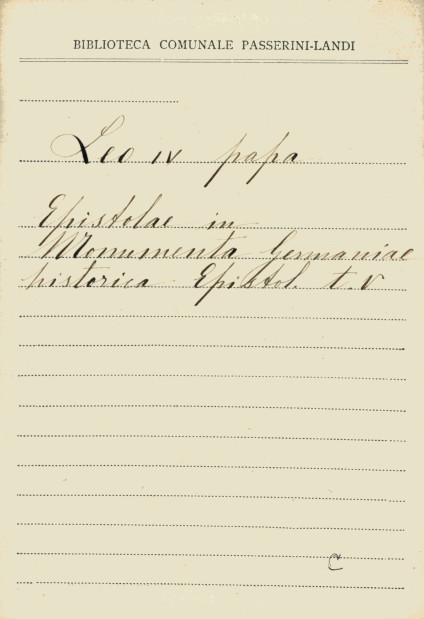 BIBLIOTECA COMUNALE PASSERINI-LANDI
Leo IV papa
Epistolae in
Monumenta Germaniae
historica Epistol. t. V
C